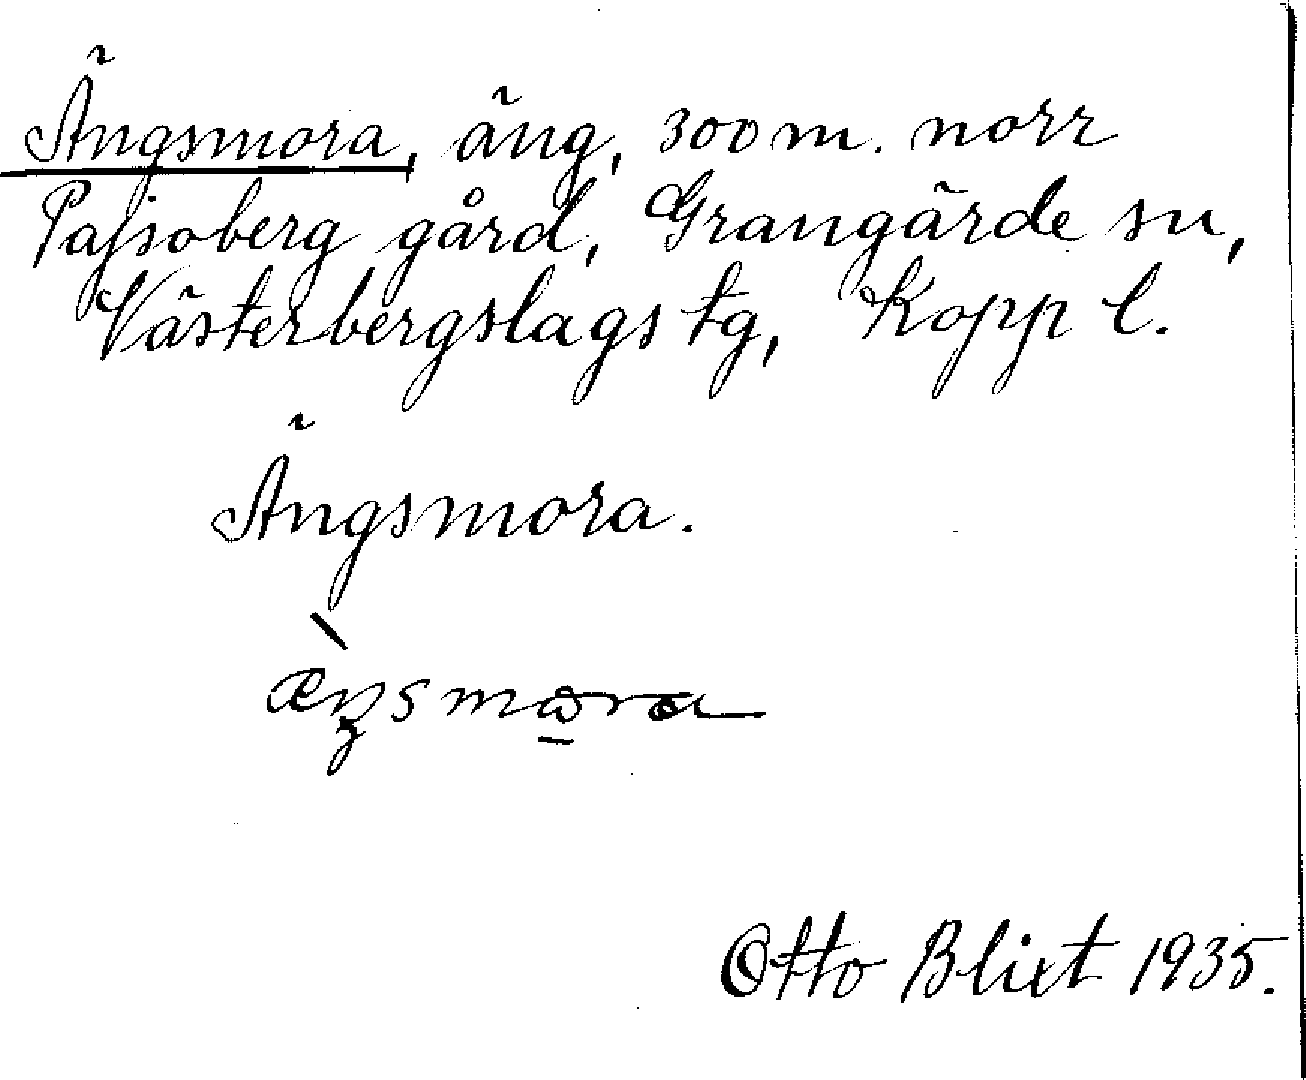 Ängsmora, äng, 300 m. norr
Pajsoberg gård, Grangärde sn,
Västerbergslags tg, Kopp l.
Ängsmora.
Otto Blixt 1935.